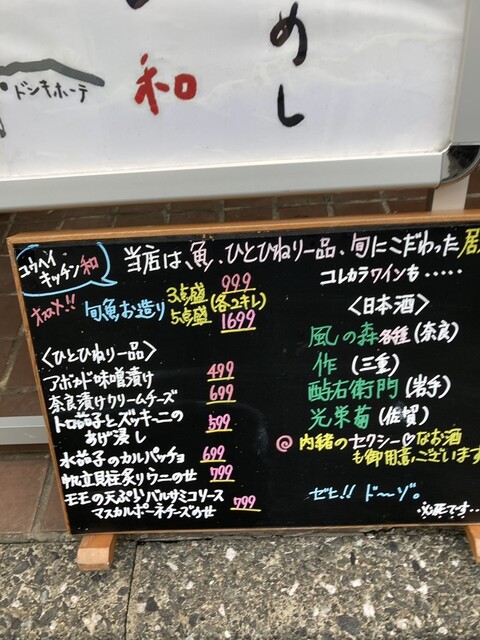 めし
和
ドンキホーテ
コウヘイ
キッチン和
当店は、魚、ひとひねり一品、旬にこだわった居
コレカラワインも・・・・・
オススメ!!
旬魚お造り
3点盛 999
(各2キレ)
5点盛 1699
〈日本酒〉
風の森各種(奈良)
作(三重)
酔右衛門(岩手)
光栄菊(佐賀)
内緒のセクシー♡なお酒
も御用意ございます
ゼヒ!!ド〜ゾ。
〈ひとひねり一品〉
アボカド味噌漬け 499
奈良漬けクリームチーズ 699
トロ茄子とズッキーニの
あげ浸し 599
水茄子のカルパッチョ 699
帆立貝柱炙りウニのせ 799
桃の天ぷらバルサミコソース
マスカルポーネチーズのせ 799